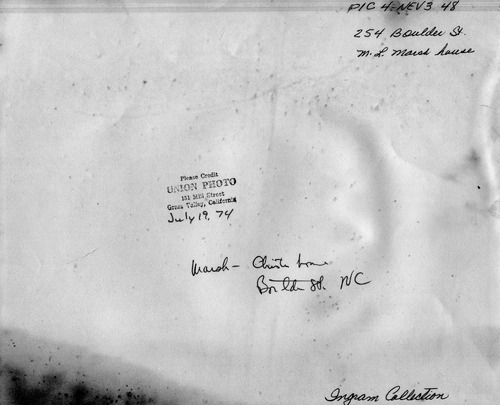 PIC 4-NEV3 48
254 Boulder St.
M. L. Marsh house
Please Credit
UNION PHOTO
151 Mill Street
Grass Valley, California
July 19, 74
Marsh - Christie home
Boulder St. NC
Ingram Collection